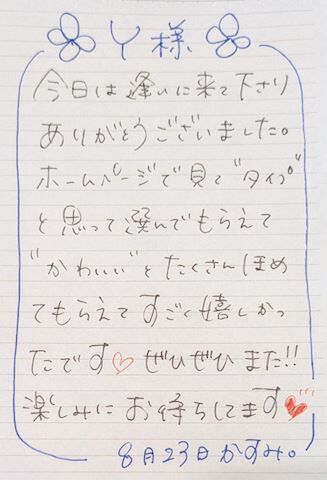 Y様
今日は逢いに来て下さり
ありがとうございました。
ホームページで見て"タイプ"
と思って選んでもらえて
"かわいい"とたくさんほめ
てもらえてすごく嬉しかっ
たです♡ ぜひぜひまた!!
楽しみにお待ちしてます♥
8月23日かすみ。